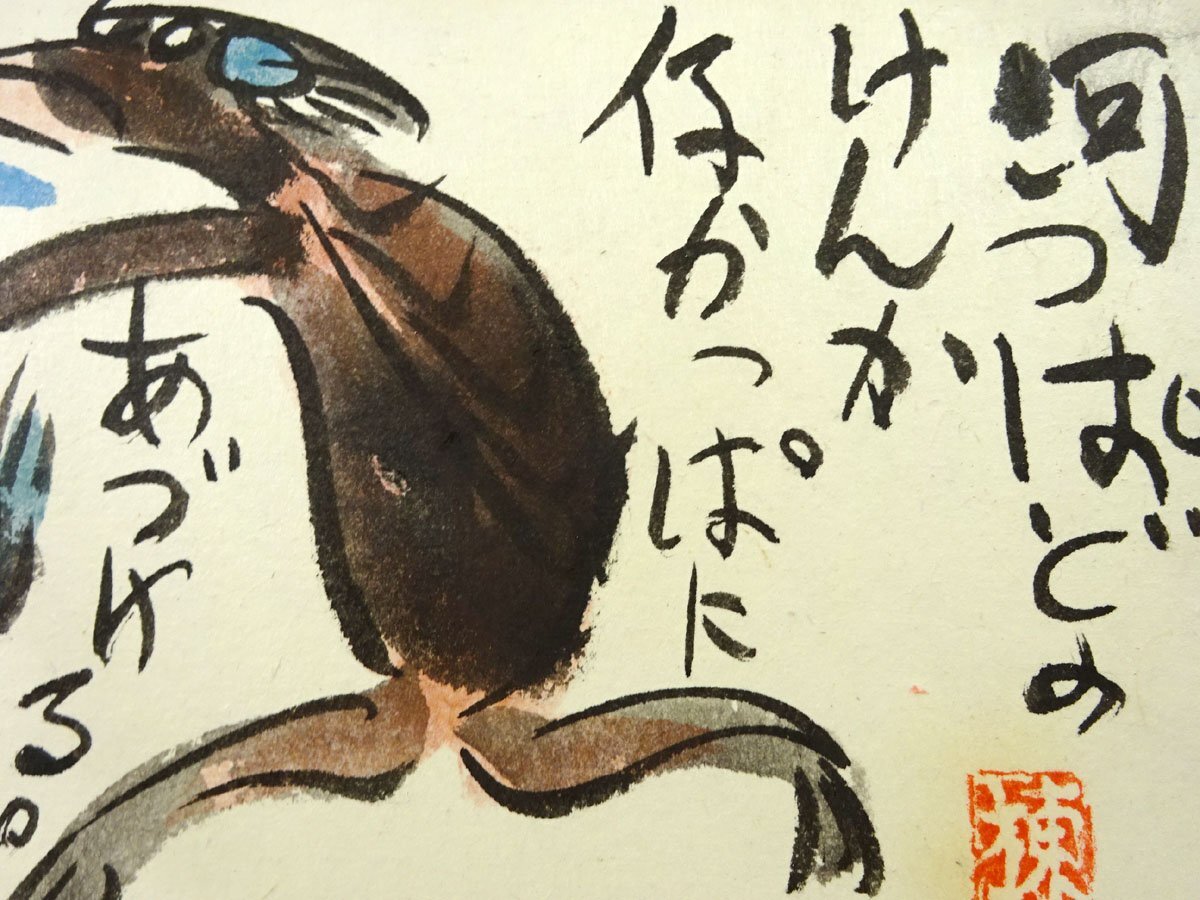 河っぱどの
けんか
仔かっぱに
あづける。